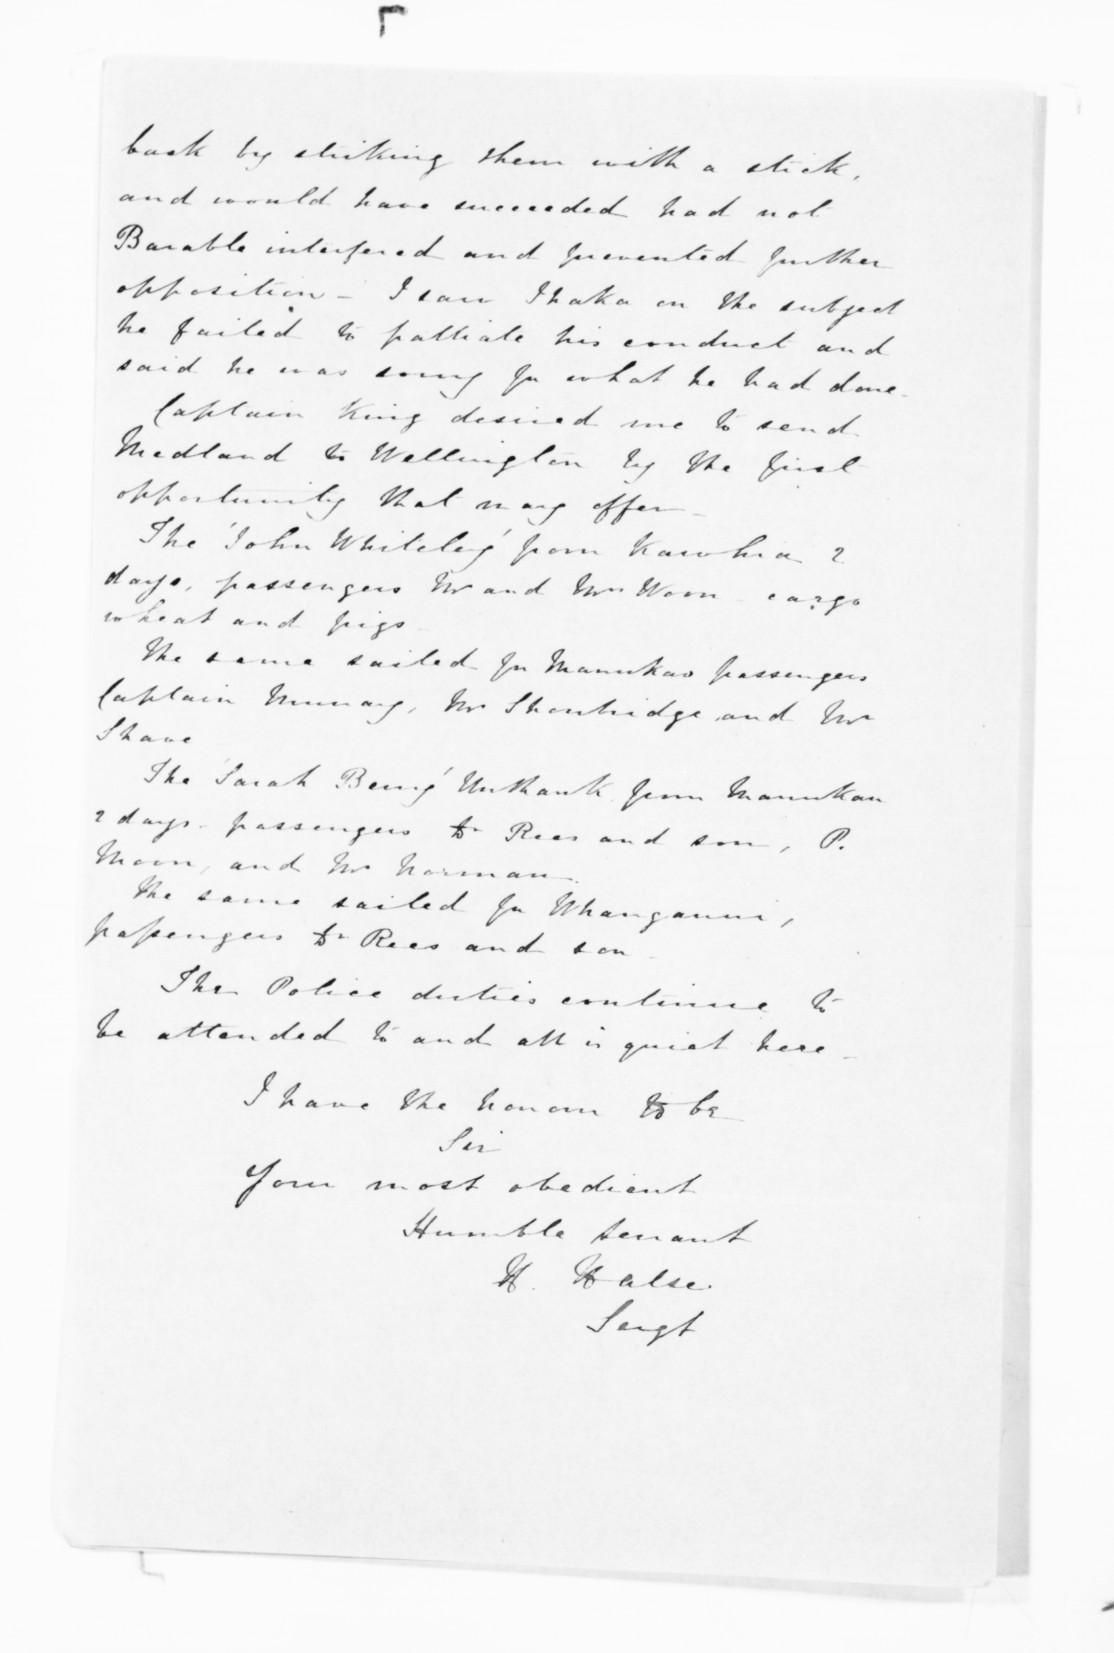 back by striking them with a stick,
and would have succeeded had not
Barable interfered and prevented further
opposition - I saw Ihaka on the subject
he failed to palliate his conduct and
said he was sorry for what he had done.
Captain King desired me to send
Medland to Wellington by the first
opportunity that may offer -
The 'John Whiteley' from Kawhia 2
days, passengers Mr and Mrs Woon cargo
wheat and pigs -
The same sailed for Manukau passengers
Captain Murray, Mr Shoubridge and Mr
Shave
The 'Sarah Berry' Unthank from Manukau
2 days - passengers Dr Rees and son, P.
Moon, and Mr Norman.
The same sailed for Whanganui,
passengers Dr Rees and son -
The Police duties continue to
be attended to and all is quiet here -
I have the honour to be
Sir
Your most obedient
Humble servant
H. Halse.
Sergt